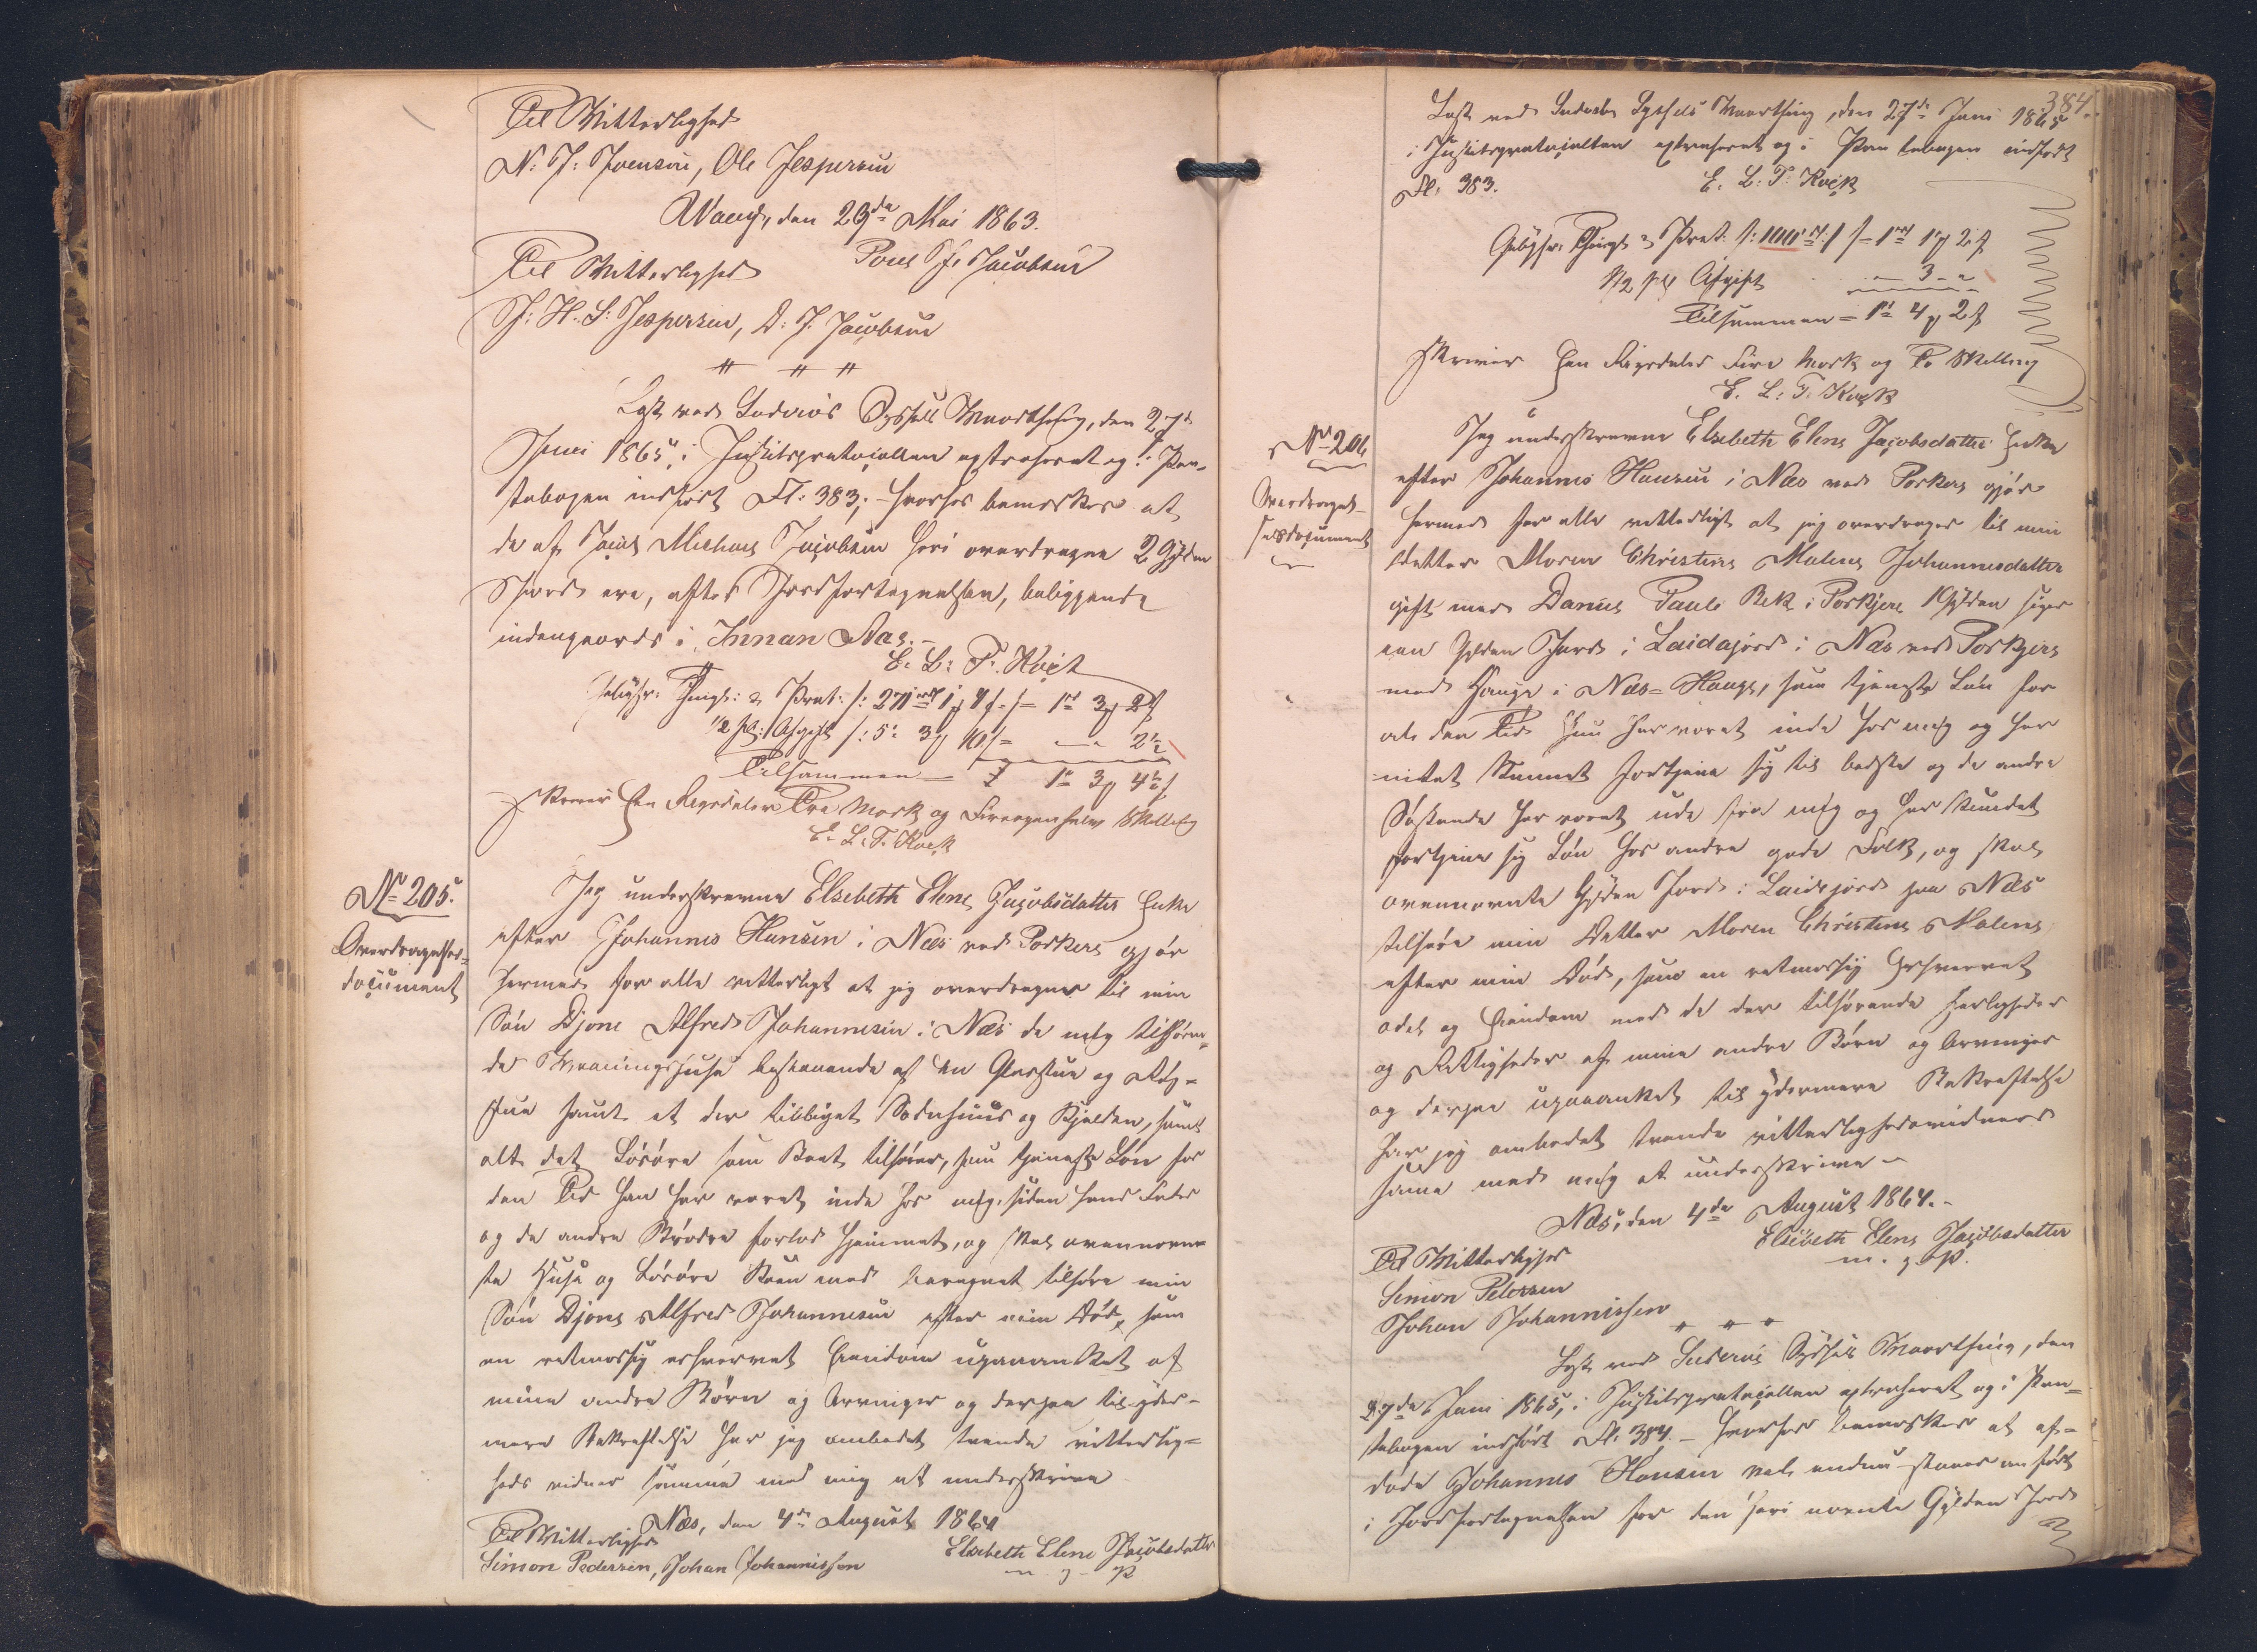 Til Vitterlighed
N: J: Joensen, Ole Jespersen
Waag, den 29de Mai 1863.
Til Vitterlighed Poul J. Jacobsen
J: H. S: Jespersen, D: J. Jacobsen
Læst ved Suderøes Syssels Vaarthing, den 27de
Juni 1865, i Justitsprotocollen extraheret og i Pan-
tebogen indført Fl: 383; hvorhos bemærkes at
de af Jacob Michael Jacobsen heri overdragne 2 Gylden
Jord ere, efter Jordfortegnelsen, beliggende
indengaards i Innan Aae.-
E. L: T. Koch
Gebyhr: Thingl: & Prot: /: 271 rd 1 # 4 s. /= 1 rd 3 # 2 s
1/2 pCt: Afgift /: 5: 3 # 10/= -„- 2 1/2
Tilsammen = 1 rd 3 # 4 1/2 s
skriver Een Rigsdaler Tre Mark og Fireogenhalv Skilling
E. L: T. Koch
No 205.
Overdragelses-
document
Jeg underskrevne Elsebeth Elene Jacobsdatter Enke
efter Johannes Hansen i Næs ved Porkere gjør
hermed for alle vitterligt at jeg overdrager til min
Søn Djone Alfred Johannesen i Næs de mig tilhøren-
de Vaaningshuse bestaaende af en Glasstue og Røg-
stue samt et der tilbygget Sodnhuus og Kjelder, samt
alt det Løsøre som Boet tilhører, som tjeneste Løn for
den Tid han har været inde hos mig, siden hans Fader
og de andre Brødre forlod Hjemmet, og skal ovennævn-
te Huse og Løsøre Been med beregnet tilhøre min
Søn Djone Alfred Johannesen efter min Død, som
en retmæssig erhvervet Eiendom upaaanket af
mine andre Børn og Arvinger og derpaa til yder-
mere Bekræftelse har jeg ombedet tvende vitterlig-
heds vidner samme med mig at underskrive
Næs, den 4de August 1864
Til Vitterlighed Elsebeth Elene Jacobsdatter
Simon Pedersen, Johan Johannissen m. f. P.
384.
Læst ved Suderøes Syssels Vaarthing, den 27de Juni 1865
i Justitsprotocollen extraheret og i Pantebogen indført
Fl. 383. E. L: T: Koch
Gebyhr: Thingl: & Prot: /: 100 rd: / /= 1 rd 1 # 2 s
1/2 pCt Afgift -„- 3 -„-
Tilsammen = 1 rd 4 # 2 s
skriver Een Rigsdaler Fire Mark og To Skilling
E. L: T. Koch
No 206
Overdragel-
sesdocument
Jeg underskrevne Elsebeth Elene Jacobsdatter Enke
efter Johannes Hansen i Næs ved Porkere gjør
hermed for alle vitterligt at jeg overdrager til min
Datter Maren Christine Malene Johannesdatter
gift med Daniel Pauli Bek i Porkjere 1 Gylden siger
een Gylden Jord i Laidajørd i Næs ved Porkjere
med Hauge i Næs-Hauge, som tjeneste Løn for
al den Tid hun har været inde hos mig og har
intet kunnet fortjene sig til bedste og de andre
Søskende har været ude fra mig og har kundet
fortjene sig Løn hos andre gode Folk, og skal
ovennævnte Gylden Jord i Laidejørd paa Næs
tilhøre min Datter Maren Christine Malene
efter min Død, som en retmæssig erhvervet
odel og Eiendom med de der tilhørende Herligheder
og Rettigheder af mine andre Børn og Arvinger
og derpaa upaaanket til ydermere Bekræftelse
har jeg ombedet tvende vitterlighedsvidner
samme med mig at underskrive -
Næs, den 4de August 1864.-
Til Vitterlighed Elsebeth Elene Jacobsdatter
Simon Petersen m. f. P.
Johan Johannissen
Læst ved Suderøes Syssels Vaarthing, den
27de Juni 1865, i Justitsprotocollen extraheret og i Pan-
tebogen indført Fl. 384. - hvorhos bemærkes at af-
døde Johannes Hansen vel endnu staaer anført
i Jordfortegnelsen for den heri nævnte Gylden Jord